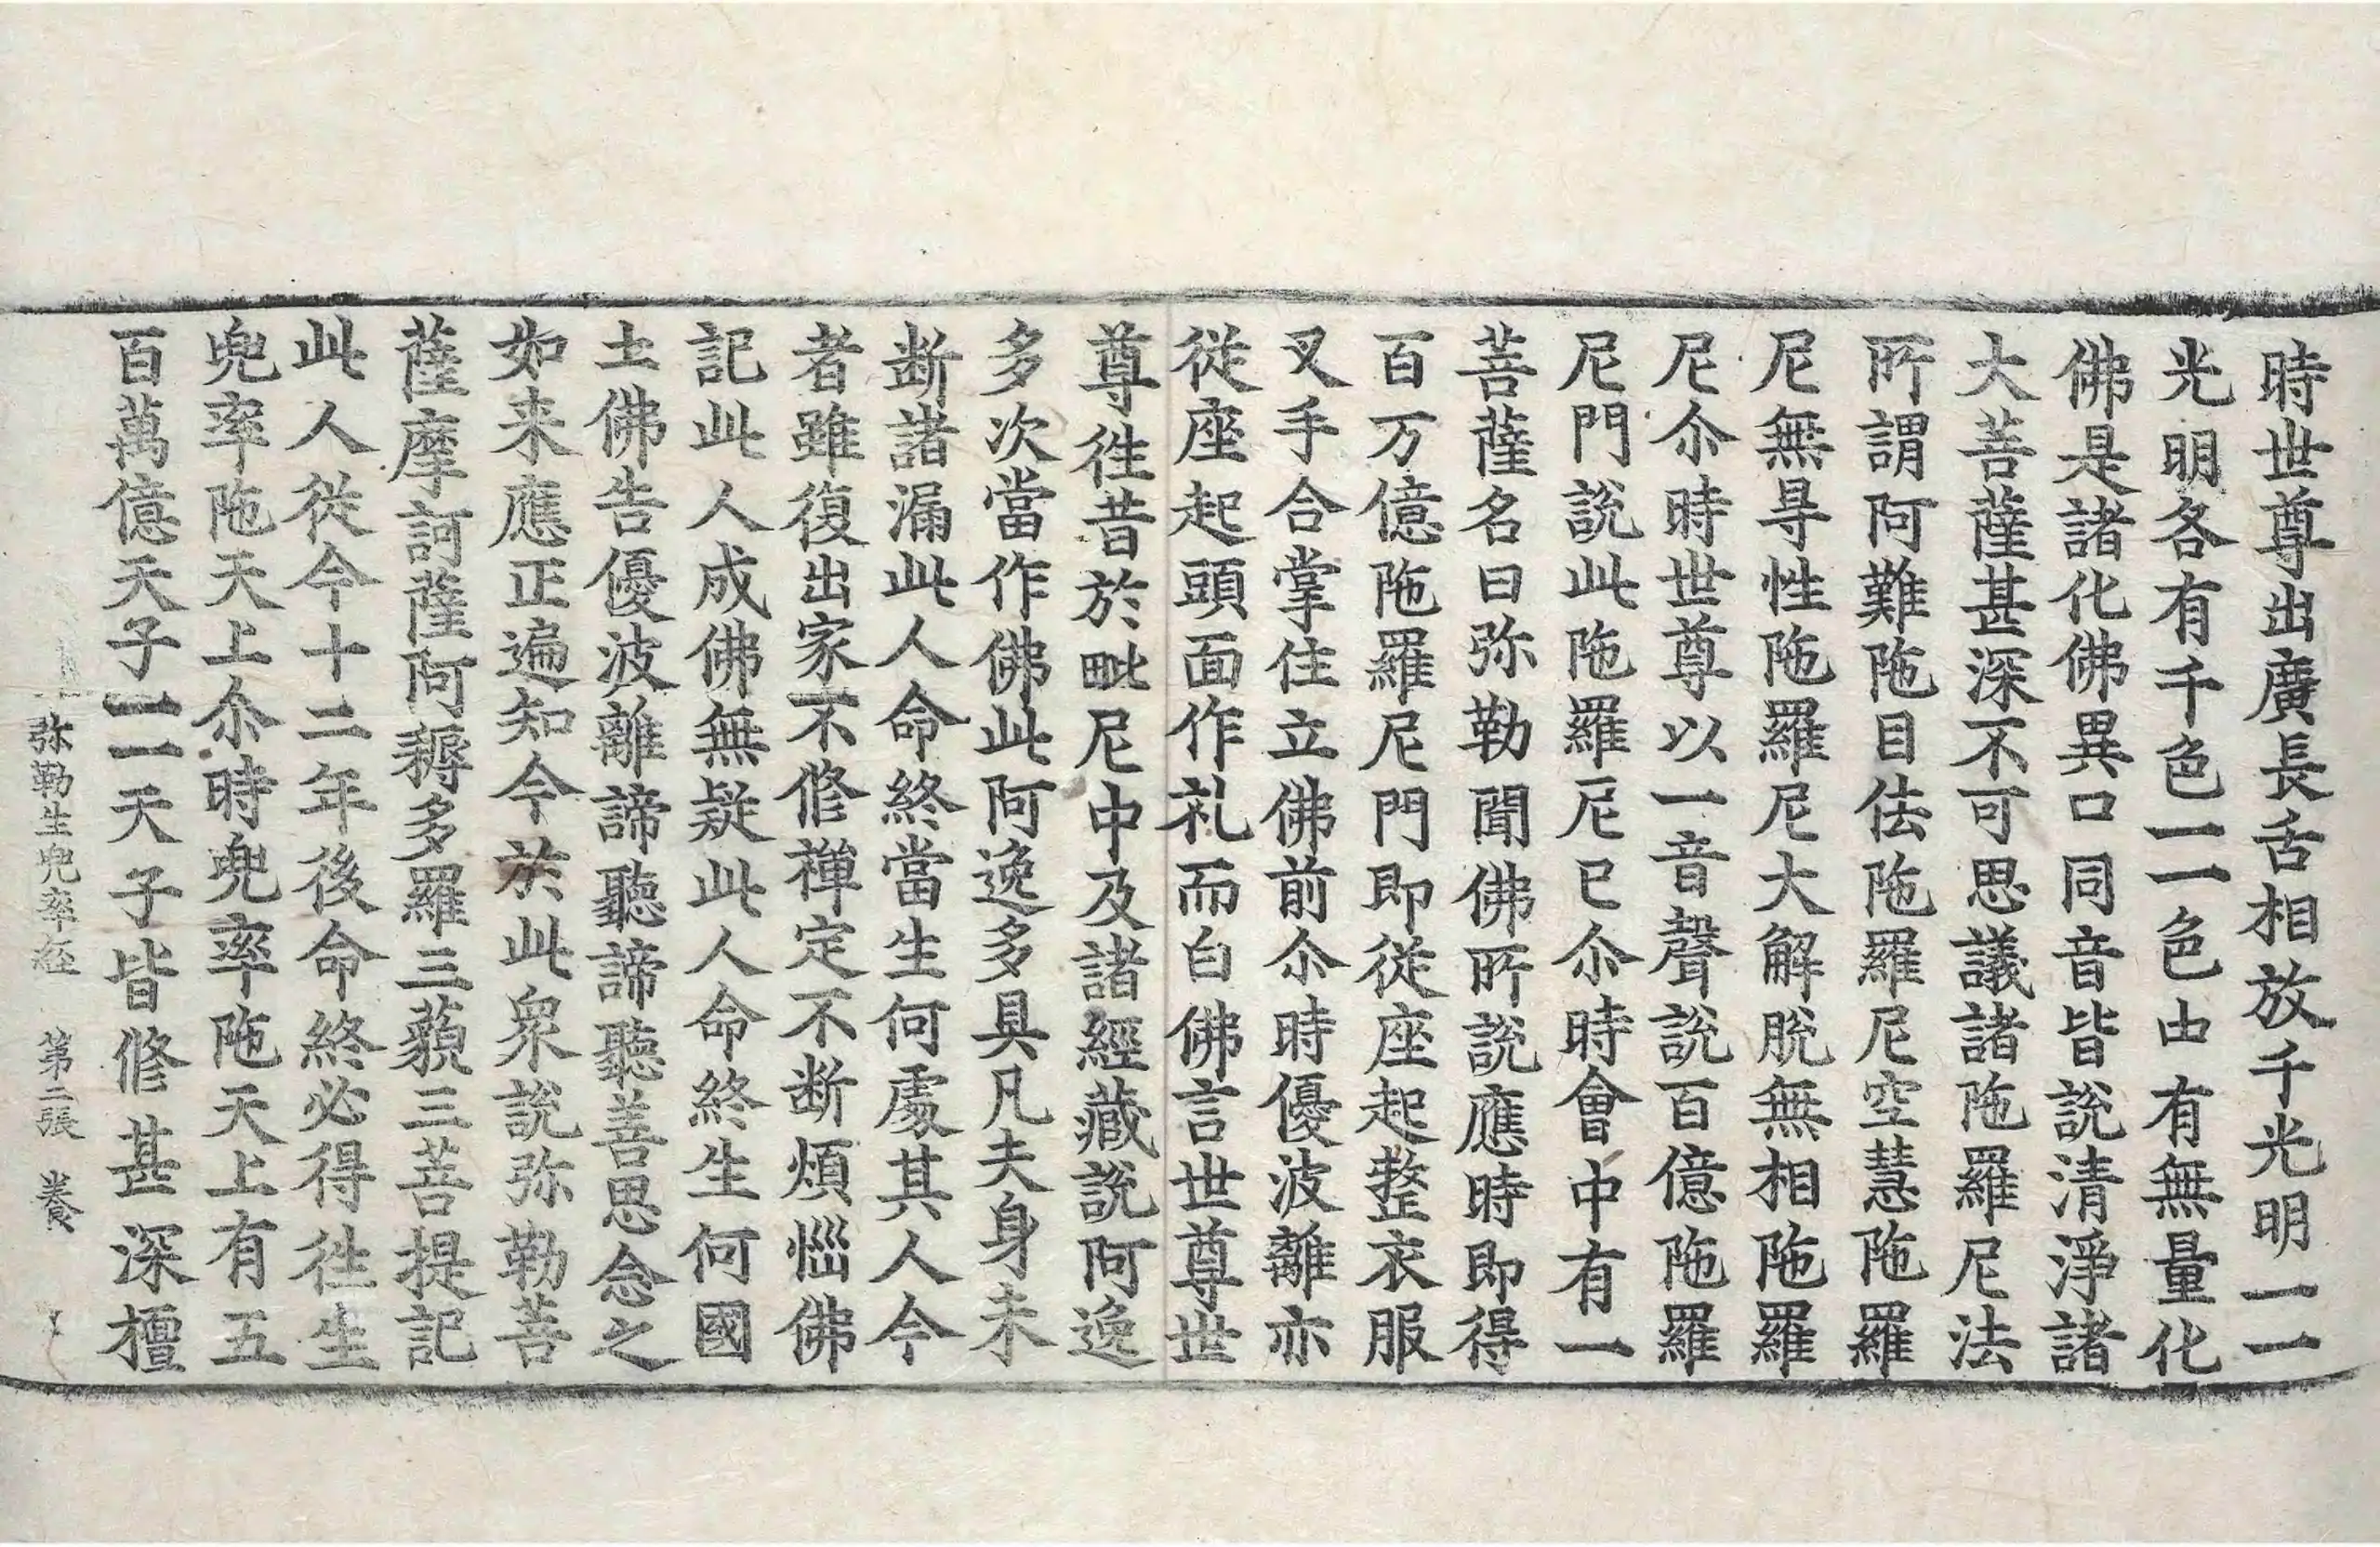 時世尊出廣長舌相放千光明一一
光明各有千色一一色由有無量化
佛是諸化佛異口同音皆說清淨諸
大菩薩甚深不可思議諸陁羅尼法
所謂阿難陁目佉陁羅尼空慧陁羅
尼無㝵性陁羅尼大解脫無相陁羅
尼尒時世尊以一音聲說百億陁羅
尼門說此陁羅尼已尒時會中有一
菩薩名曰弥勒聞佛所說應時即得
百万億陁羅尼門即從座起整衣服
叉手合掌住立佛前尒時優波離亦
從座起頭面作礼而白佛言世尊世
尊徃昔於毗尼中及諸經藏說阿逸
多次當作佛此阿逸多具凡夫身未
断諸漏此人命終當生何處其人今
者雖復出家不修禪定不断煩惱佛
記此人成佛無疑此人命終生何國
土佛告優波離諦聽諦聽善思念之
如来應正遍知今於此衆說弥勒菩
薩摩訶薩阿耨多羅三藐三菩提記
此人從今十二年後命終必得徃生
兜率陁天上尒時兜率陁天上有五
百萬億天子一一天子皆修甚深檀
弥勒生兜率經 第二張 養